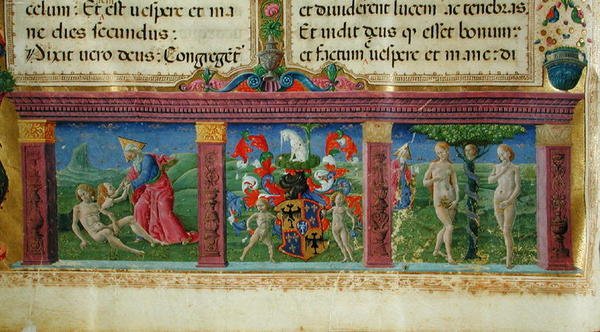 celum: Et est uespere et ma
ne dies secundus:
Dixit uero deus: Congreget᷑
et diuiderent lucem ac tenebras
Et uidit deus qͥ esset bonum:
et factum uespere et mane: di